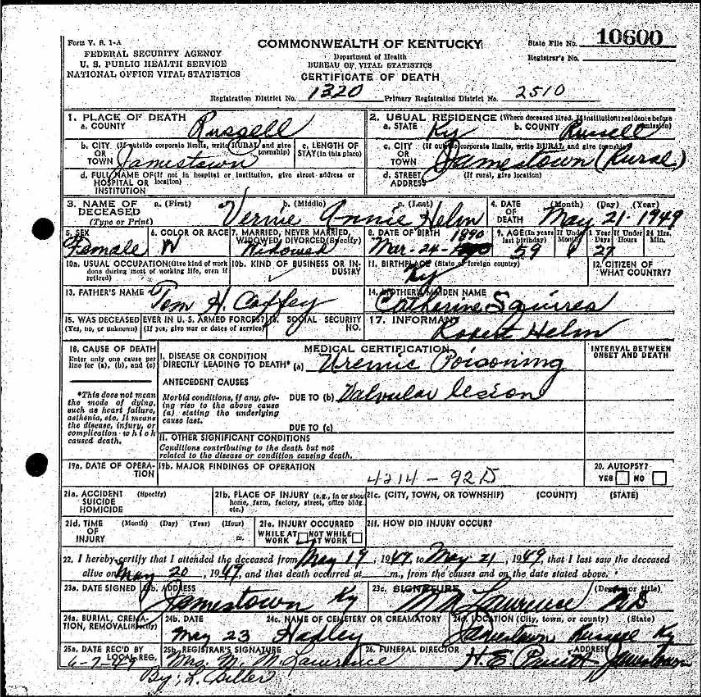 Form V. S. 1-A
FEDERAL SECURITY AGENCY
U. S. PUBLIC HEALTH SERVICE
NATIONAL OFFICE VITAL STATISTICS
COMMONWEALTH OF KENTUCKY
Department of Health
BUREAU OF VITAL STATISTICS
CERTIFICATE OF DEATH
State File No. 10600
Registrar's No.
Registration District No. 1320 Primary Registration District No. 2510
1. PLACE OF DEATH
a. COUNTY Russell
2. USUAL RESIDENCE (Where deceased lived. If institution: residence before admission)
a. STATE Ky b. COUNTY Russell
b. CITY (If outside corporate limits, write RURAL and give township)
OR
TOWN Jamestown
c. LENGTH OF STAY (in this place)
c. CITY (If outside corporate limits, write RURAL and give township)
OR
TOWN Jamestown (Rural)
d. FULL NAME OF (If not in hospital or institution, give street address or location)
HOSPITAL OR
INSTITUTION
d. STREET (If rural, give location)
ADDRESS
3. NAME OF DECEASED
(Type or Print)
a. (First) b. (Middle) c. (Last)
Vernie Annie Helm
4. DATE OF DEATH (Month) (Day) (Year)
May 21-1949
5. SEX
Female
6. COLOR OR RACE
W
7. MARRIED, NEVER MARRIED, WIDOWED, DIVORCED (Specify)
Widowed
8. DATE OF BIRTH
Mar-24- 1890
9. AGE (In years last birthday) 59
If Under 1 Year Months Days 27
If Under 24 Hrs. Hours Min.
10a. USUAL OCCUPATION (Give kind of work done during most of working life, even if retired)
10b. KIND OF BUSINESS OR INDUSTRY
11. BIRTHPLACE (State or foreign country)
Ky
12. CITIZEN OF WHAT COUNTRY?
13. FATHER'S NAME
Tem H. Coffey
14. MOTHER'S MAIDEN NAME
Catherine Squires
15. WAS DECEASED EVER IN U. S. ARMED FORCES?
(Yes, no, or unknown) (If yes, give war or dates of service)
16. SOCIAL SECURITY NO.
17. INFORMANT
Robert Helm
18. CAUSE OF DEATH
Enter only one cause per line for (a), (b), and (c)
*This does not mean the mode of dying, such as heart failure, asthenia, etc. It means the disease, injury, or complication which caused death.
MEDICAL CERTIFICATION
INTERVAL BETWEEN ONSET AND DEATH
I. DISEASE OR CONDITION
DIRECTLY LEADING TO DEATH* (a) Uremic Poisoning
ANTECEDENT CAUSES
Morbid conditions, if any, giving rise to the above cause (a) stating the underlying cause last.
DUE TO (b) Valvular lesion
DUE TO (c)
II. OTHER SIGNIFICANT CONDITIONS
Conditions contributing to the death but not related to the disease or condition causing death.
19a. DATE OF OPERATION
19b. MAJOR FINDINGS OF OPERATION
4214-92D
20. AUTOPSY?
YES NO
21a. ACCIDENT (Specify)
SUICIDE
HOMICIDE
21b. PLACE OF INJURY (e.g., in or about home, farm, factory, street, office bldg. etc.)
21c. (CITY, TOWN, OR TOWNSHIP) (COUNTY) (STATE)
21d. TIME OF INJURY (Month) (Day) (Year) (Hour) m.
21e. INJURY OCCURRED
WHILE AT WORK NOT WHILE AT WORK
21f. HOW DID INJURY OCCUR?
22. I hereby certify that I attended the deceased from May 19, 1949, to May 21, 1949, that I last saw the deceased
alive on May 20, 1949, and that death occurred at m., from the causes and on the date stated above.
23a. DATE SIGNED
23b. ADDRESS
Jamestown Ky
23c. SIGNATURE (Degree or title)
M M Lawrence MD
24a. BURIAL, CREMATION, REMOVAL (Specify)
24b. DATE
May 23
24c. NAME OF CEMETERY OR CREMATORY
Hadley
24d. LOCATION (City, town, or county) (State)
Jamestown Russell Ky
25a. DATE REC'D BY LOCAL REG.
6-7-49
25b. REGISTRAR'S SIGNATURE
Mrs. M. M. Lawrence
By: L.
26. FUNERAL DIRECTOR ADDRESS
H. E. Pruitt Jamestown